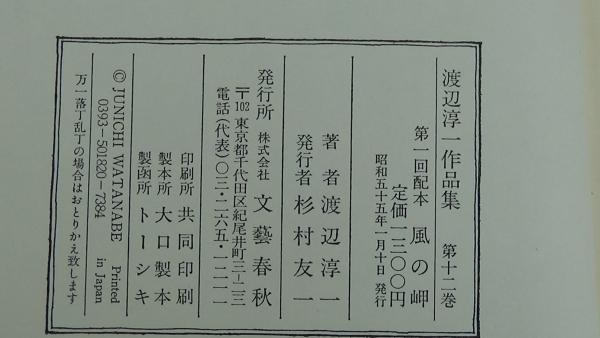 渡辺淳一作品集 第十二巻
第一回配本 風の岬
定価一三〇〇円
昭和五十五年一月十日 発行
著者 渡辺淳一
発行者 杉村友一
発行所 株式会社 文藝春秋
〒102 東京都千代田区紀尾井町三ー二三
電話(代表)〇三・二六五・一二一一
印刷所 共同印刷
製本所 大口製本
製函所 トーシキ
© JUNICHI WATANABE Printed in Japan
0393-501820-7384
万一落丁乱丁の場合はおとりかえ致します